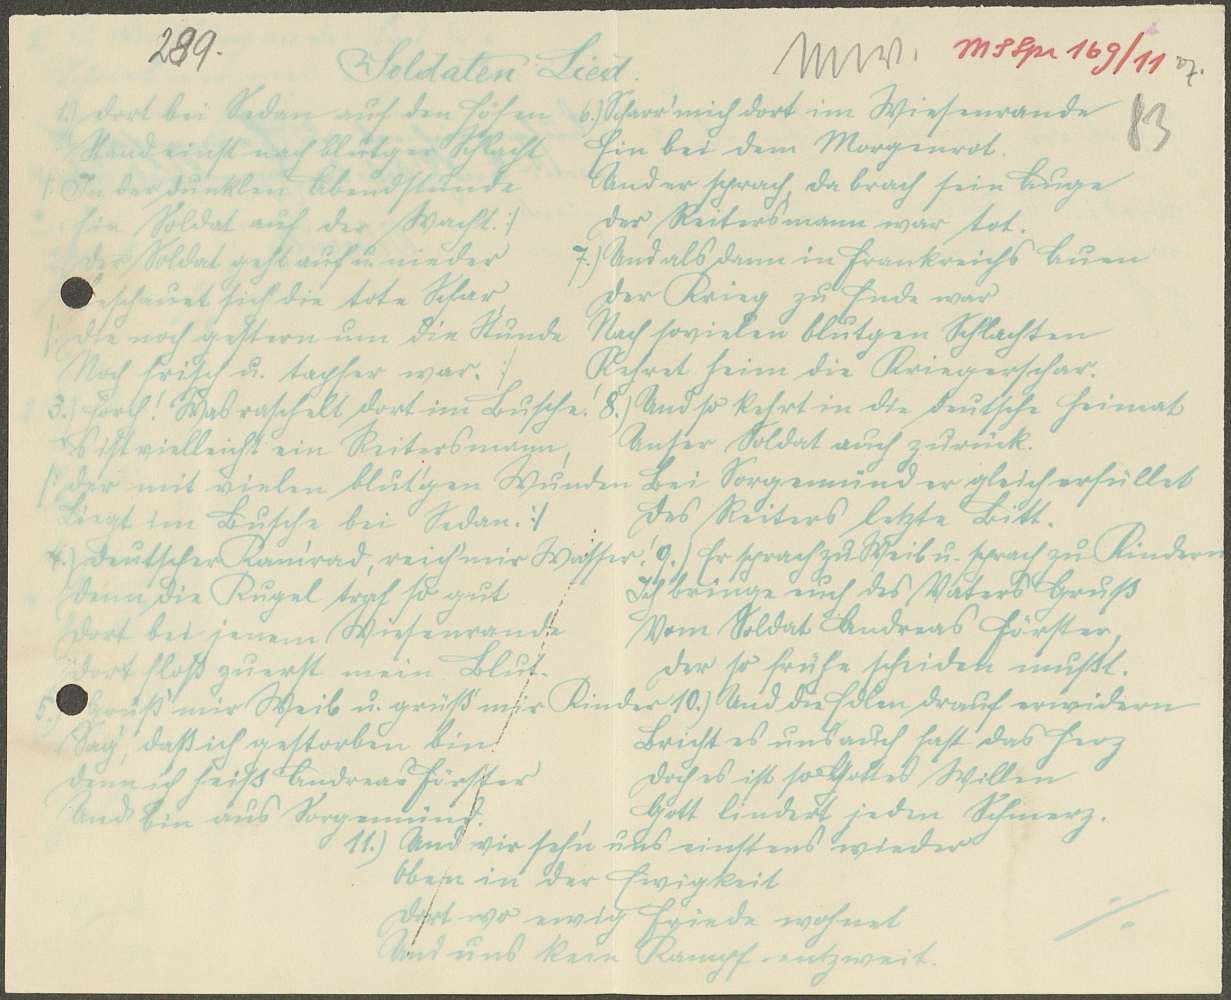 289.
MW.
MSSpr 169/11 27.
83
Soldaten Lied.
1.) Dort bei Sedan auf den Höhen
Stand einst nach blutger Schlacht
/: In der dunklen Abendstunde
Ein Soldat auf der Wacht. :/
2.) Der Soldat geht auf u. nieder
Beschauet sich die tote Schar
/: Die noch gestern um die Stunde
Noch frisch u. tapfer war. :/
3.) Horch! Was raschelt dort im Busche!
S'ist vielleicht ein Reitersmann,
/: Der mit vielen blut'gen Wunden
Liegt im Busche bei Sedan. :/
4.) Deutscher Kam'rad, reich' mir Wasser!
Denn die Kugel traf so gut
Dort bei jenem Wiesenrande
Dort floß zuerst mein Blut.
5.) Grüß' mir Weib u. grüß' mir Kinder
Sag', daß ich gestorben bin
Denn ich heiß Andreas Förster
Und bin aus Sorgemünd.
6.) Scharr' mich dort im Wiesenrande
Ein bei dem Morgenrot.
Und er sprach, da brach sein Auge
Der Reitersmann war tot.
7.) Und als dann in Frankreichs Auen
Der Krieg zu Ende war
Nach sovielen blutgen Schlachten
Kehret heim die Kriegerschar.
8.) Und so kehrt in die deutsche Heimat
Unser Soldat auch zurück.
Bei Sorgemünd er gleich erfüllet
Des Reiters letzte Bitt.
9.) Er sprach zu Weib u. sprach zu Kindern
Ich bringe euch des Vaters Gruß
Vom Soldat Andreas Förster,
Der so frühe scheiden mußt.
10.) Und die Edlen drauf erwidern
Bricht es uns auch fast das Herz
Doch es ist so Gottes Willen
Gott lindert jeden Schmerz.
11.) Und wir seh'n uns einstens wieder
Oben in der Ewigkeit
Dort wo ewig Friede wohnet
Und uns kein Kampf entzweit.